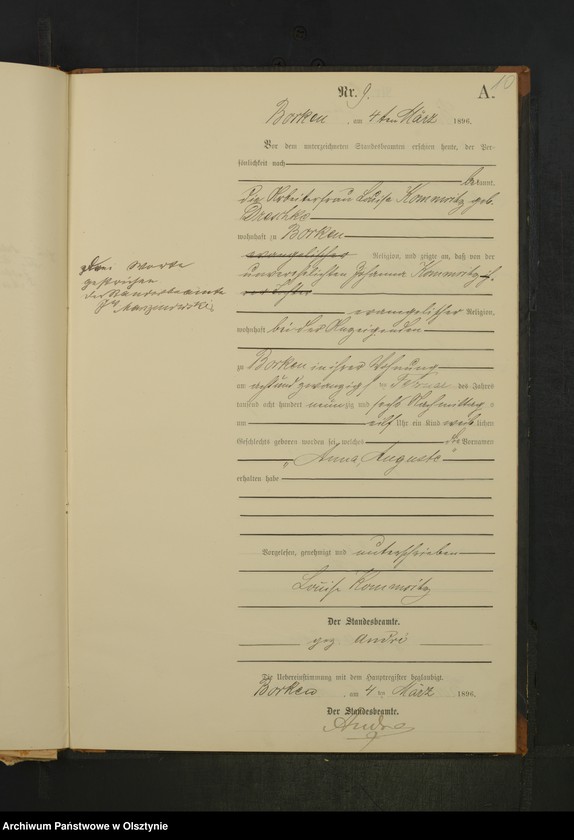 10
Nr. 9. A.
Borken, am 4ten März 1896.
Vor dem unterzeichneten Standesbeamten erschien heute, der Per-
sönlichkeit nach
bekannt,
die Arbeiterfrau Louise Kommritz geb.
Dreschke
wohnhaft zu Borken
evangelischer Religion, und zeigte an, daß von der
unverehelichten Johanna Kommritz, ihrer
Tochter
evangelischer Religion,
wohnhaft bei der Anzeigenden
zu Borken in ihrer Wohnung
am acht und zwanzigsten Februar des Jahres
tausend acht hundert neunzig und sechs Nachmittags
um elf Uhr ein Kind weiblichen
Geschlechts geboren worden sei, welches die Vornamen
"Anna, Auguste"
erhalten habe
Worte
gestrichen
der Standesbeamte
Vorgelesen, genehmigt und unterschrieben
Louise Kommritz
Der Standesbeamte.
gez. André
Die Uebereinstimmung mit dem Hauptregister beglaubigt.
Borken, am 4ten März 1896.
Der Standesbeamte.
André
Archiwum Państwowe w Olsztynie